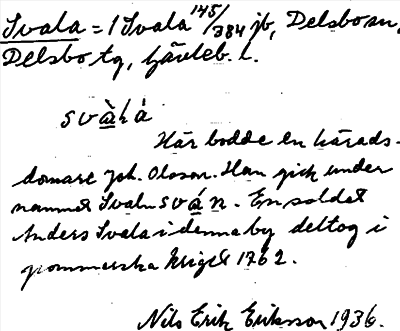 Svala = 1 Svala 145/384 jb, Delsbo sn,
Delsbo tg, Gävleb. l.
svàlá
Här bodde en härads-
domare Joh. Olsson. Han gick under
namnet Svalnsván. En soldat
Anders Svala i denna by deltog i
pommerska kriget 1762.
Nils Erik Eriksson 1936.